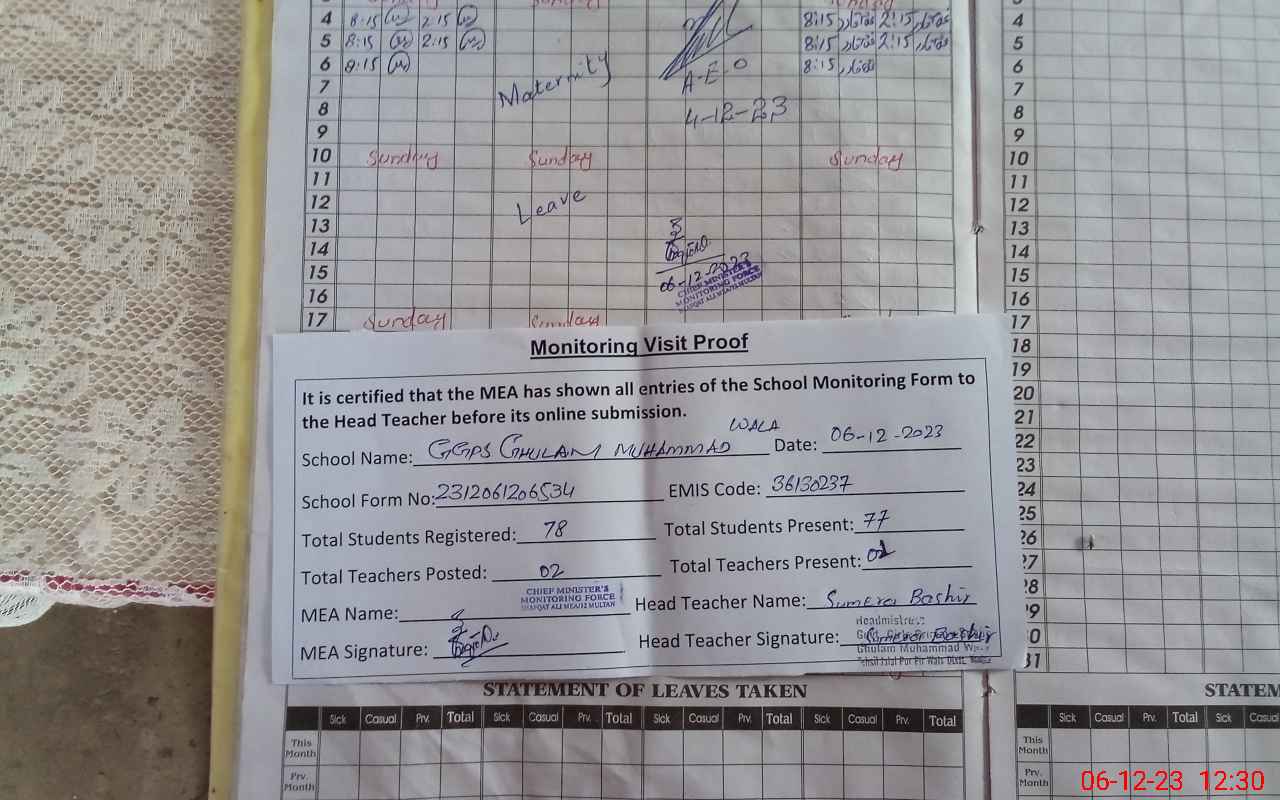 4 8:15 2:15 8:15 2:15
5 8:15 2:15 8:15 2:15
6 8:15 8:15
7
8
9
10 Sunday Sunday Sunday
11
12
13
14
15
16
17 Sunday Sunday
Maternity
Leave
A-E-O
4-12-23
06-12-2023
CHIEF MINISTER'S
MONITORING FORCE
SHAFQAT ALI MEA/12 MULTAN
4
5
6
7
8
9
10
11
12
13
14
15
16
17
18
19
20
21
22
23
24
25
26
27
28
29
30
31
Monitoring Visit Proof
It is certified that the MEA has shown all entries of the School Monitoring Form to
the Head Teacher before its online submission.
School Name: GGPS GHULAM MUHAMMAD WALA Date: 06-12-2023
School Form No: 2312061206534 EMIS Code: 36130237
Total Students Registered: 78 Total Students Present: 77
Total Teachers Posted: 02 Total Teachers Present:
MEA Name: CHIEF MINISTER'S
MONITORING FORCE
SHAFQAT ALI MEA/12 MULTAN
Head Teacher Name: Sumera Bashir
MEA Signature: Head Teacher Signature: Sumera Bashir
Headmistress
Ghulam Muhammad Wala
STATEMENT OF LEAVES TAKEN
Sick Casual Prv. Total Sick Casual Prv. Total Sick Casual Prv. Total Sick Casual Prv. Total
This
Month
Prv.
Month
STATEM
Sick Casual Prv. Total Sick Casua
This
Month
Prv.
Month
06-12-23 12:30